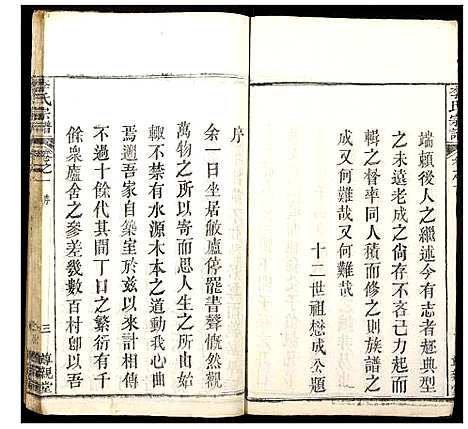 李氏宗譜
端賴後人之繼述今有志者趂典型
之未遠老成之尙存不各己力互
輯之督率同人積而修之則族譜之
成又何難哉又何難哉
十二世祖懋成公題
序
余一日坐居敝廬停罷書聲慨然觀
萬物之所以寄而思人生之所始
輙不禁有水源木本之道動我心曲
焉遡吾家自築室於茲以來計相傳
不過十餘代其間丁口之繁衍有千
餘衆廬舍之參差幾數百村卽以吾
李氏宗譜
卷之一
序
三
尊親堂